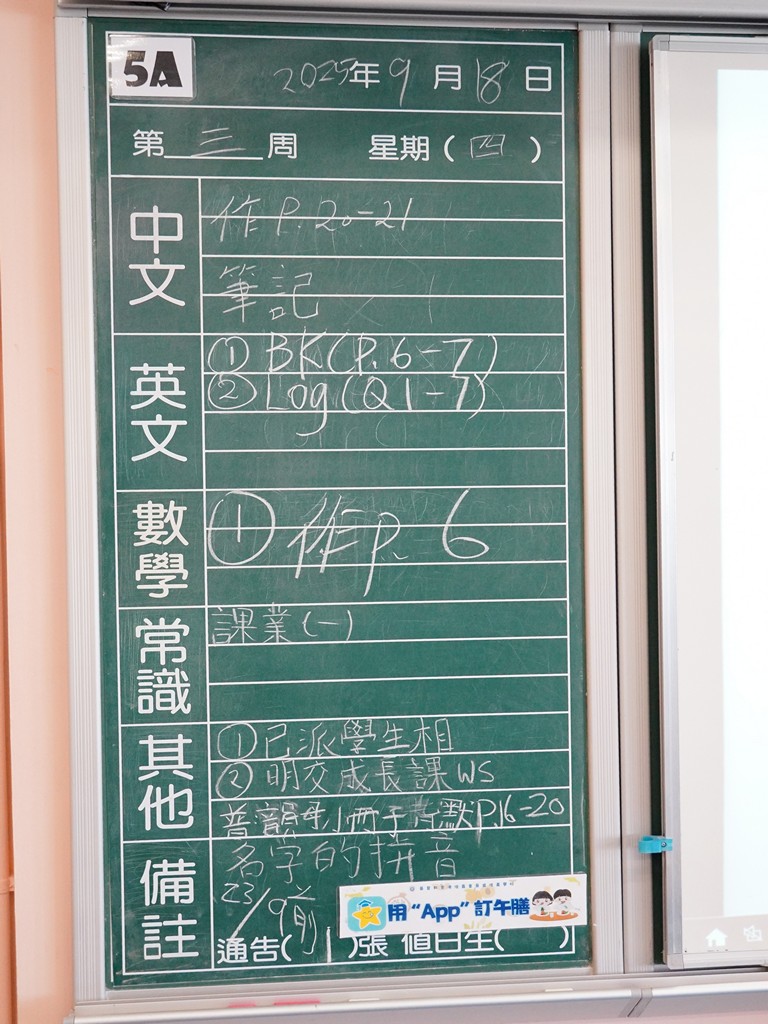 5A
2025年9月18日
第三周 星期(四)
中文
作P.20-21
筆記
英文
① BK(P.6-7)
② Log(Q1-7)
數學
① 作p.6
常識
課業(一)
其他
①已派學生相
②明交成長課WS
普韻母小冊子背默P.16-20
備註
名字的拼音
23/9前
用“App”訂午膳
通告(1)張 值日生( )